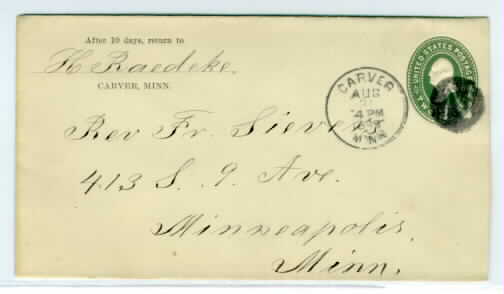 After 10 days, return to
H Raedeke.
CARVER, MINN.
UNITED STATES POSTAGE
CARVER
AUG
4 PM
MINN
Rev Fr. Sievers
413 S. 9. Ave.
Minneapolis,
Minn.